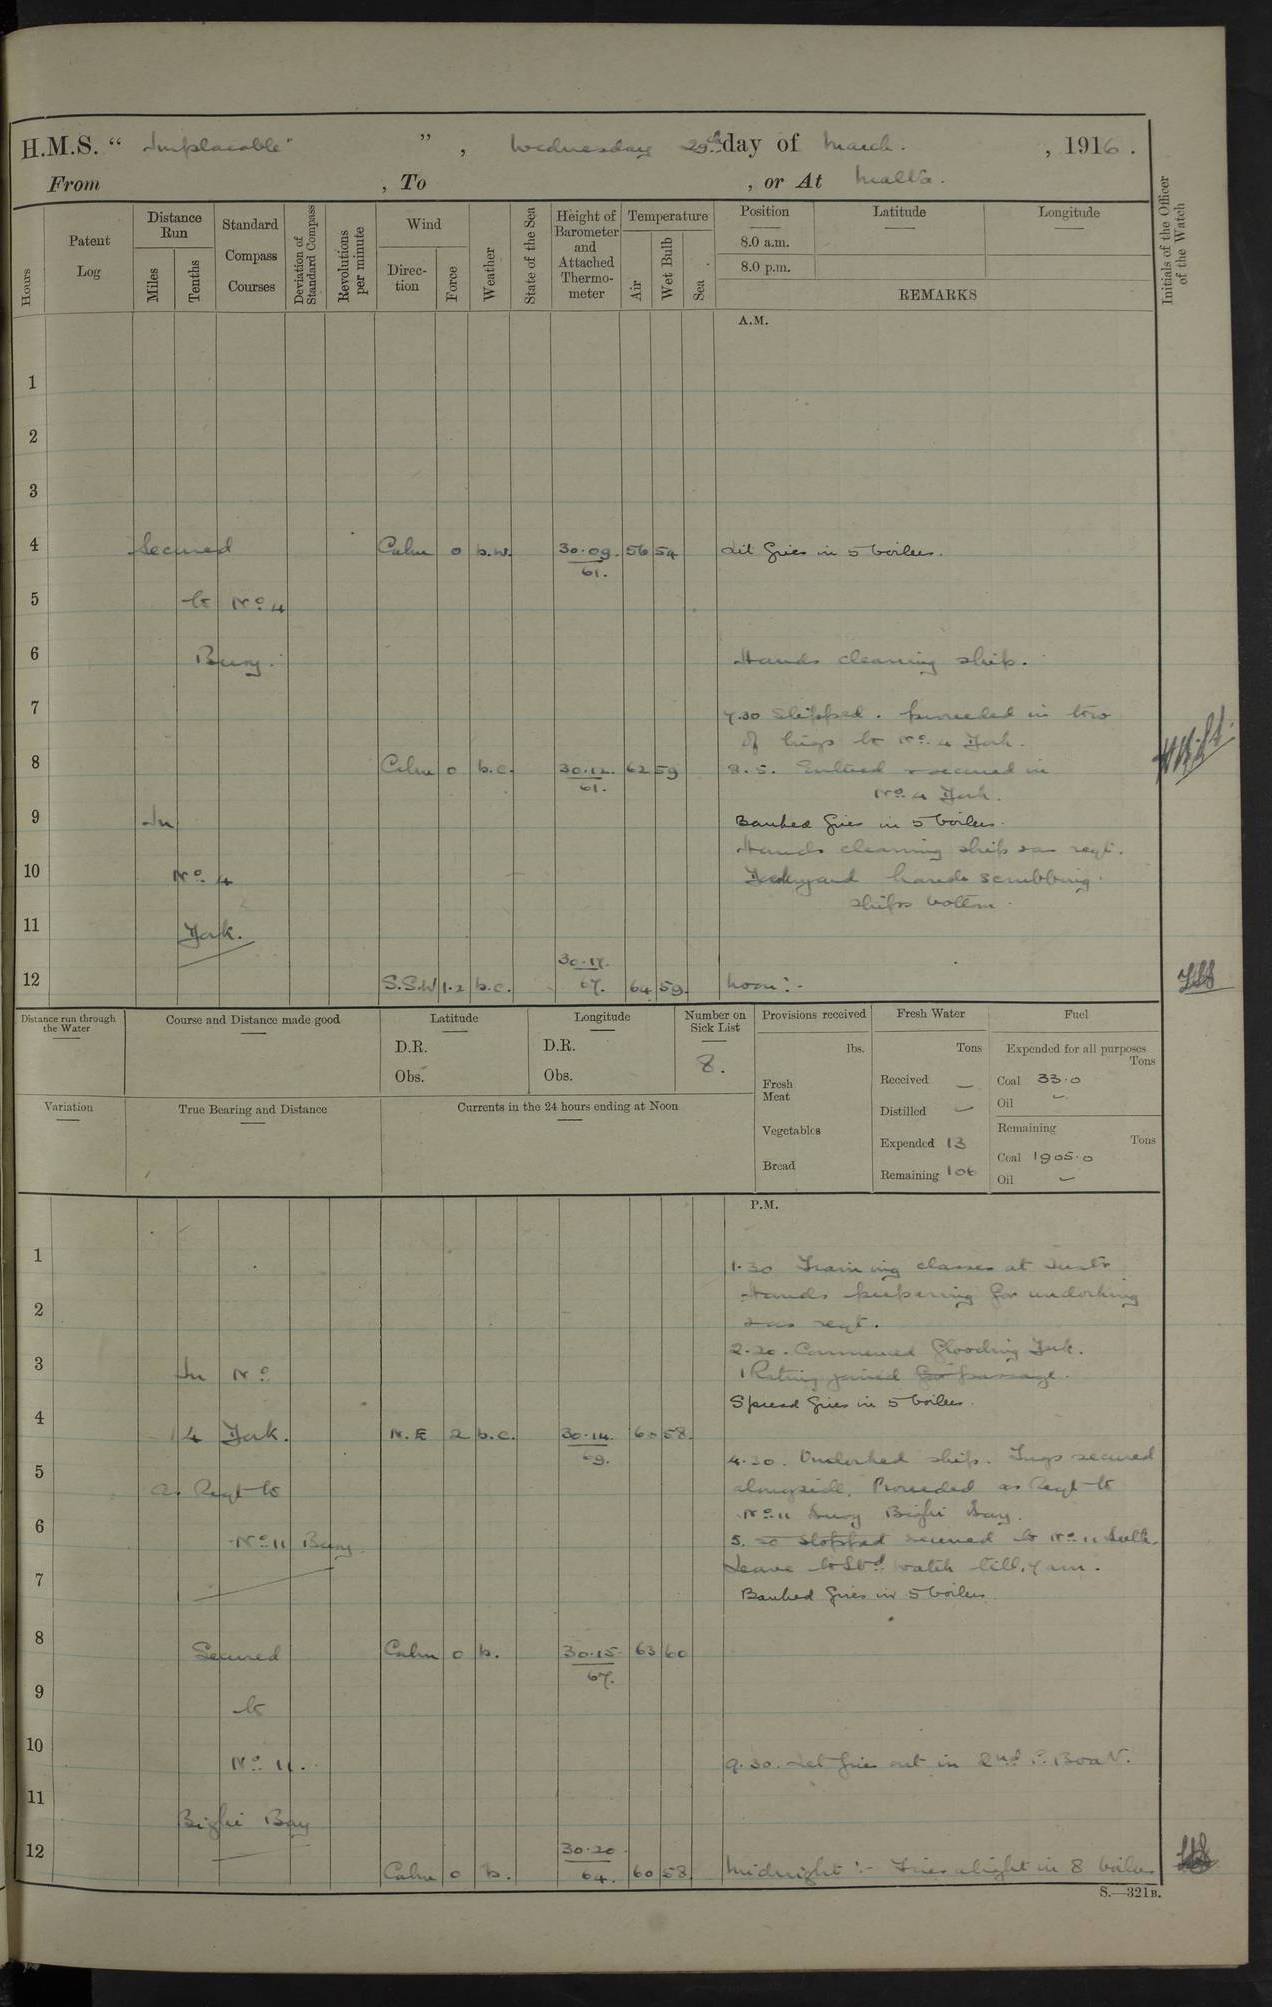 H.M.S. " Implacable " , Wednesday 29th day of March. , 1916.
From , To , or At Malta.
Hours
Patent Log
Distance Run
Miles
Tenths
Standard Compass Courses
Deviation of Standard Compass
Revolutions per minute
Wind
Direction
Force
Weather
State of the Sea
Height of Barometer and Attached Thermometer
Temperature
Air
Wet Bulb
Sea
Position
8.0 a.m.
8.0 p.m.
Latitude
Longitude
REMARKS
Initials of the Officer of the Watch
A.M.
1
2
3
4 Secured Calm 0 b.w. 30.09. 56 54 Lit fires in 5 boilers.
61.
5 to No. 4
6 Buoy. Hands cleaning ship.
7 7.30 Slipped. proceeded in tow
of tugs to No. 4 Dock.
8 Calm 0 b.c. 30.12. 62 59 8.5. Entered & secured in
61.
No. 4 Dock.
9 In Banked fires in 5 boilers.
Hands cleaning ship & as reqt.
10 No. 4 Dockyard hands scrubbing
ships bottom.
11 Dock.
30.17.
12 S.S.W 1.2 b.c. 67. 64 59. Noon :-
Distance run through the Water
Course and Distance made good
Latitude
D.R.
Obs.
Longitude
D.R.
Obs.
Number on Sick List
8.
Provisions received
lbs.
Fresh Meat
Vegetables
Bread
Fresh Water
Tons
Received —
Distilled —
Expended 13
Remaining 106
Fuel
Expended for all purposes
Tons
Coal 33.0
Oil —
Remaining
Tons
Coal 1905.0
Oil —
Variation
True Bearing and Distance
Currents in the 24 hours ending at Noon
P.M.
1 1.30 Training classes at Instn
2 Hands preparing for undocking
& as reqt.
3 In No. 2.20. Commenced flooding Dock.
1 Rating joined for passage.
Spread fires in 5 boilers.
4 4 Dock. N.E 2 b.c. 30.14. 60 58.
69.
4.30. Undocked ship. Tugs secured
5 As Reqt to alongside. Proceeded as Reqt to
No. 11 Buoy Bighi Bay.
6 No. 11 Buoy 5. 50 stopped secured to No. 11
Leave to Stbd watch till 7 am.
7 Banked fires in 5 boilers.
8 Secured Calm 0 b. 30.15 63 60
67.
9 to
10 No. 11. 9.30. Let fires out in 2nd P. Boat.
11 Bighi Bay
30.20
12 Calm 0 b. 64. 60 58. Midnight :- Fires alight in 8 boilers
S.—321B.